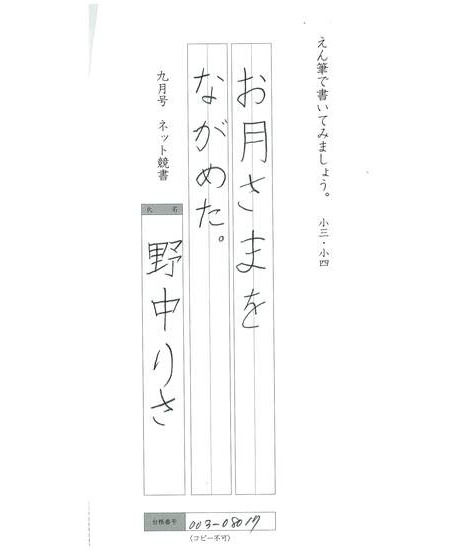 えん筆で書いてみましょう。 小三・小四
お月さまを
ながめた。
九月号 ネット競書
氏 名
野中りさ
台帳番号 003-08017
(コピー不可)